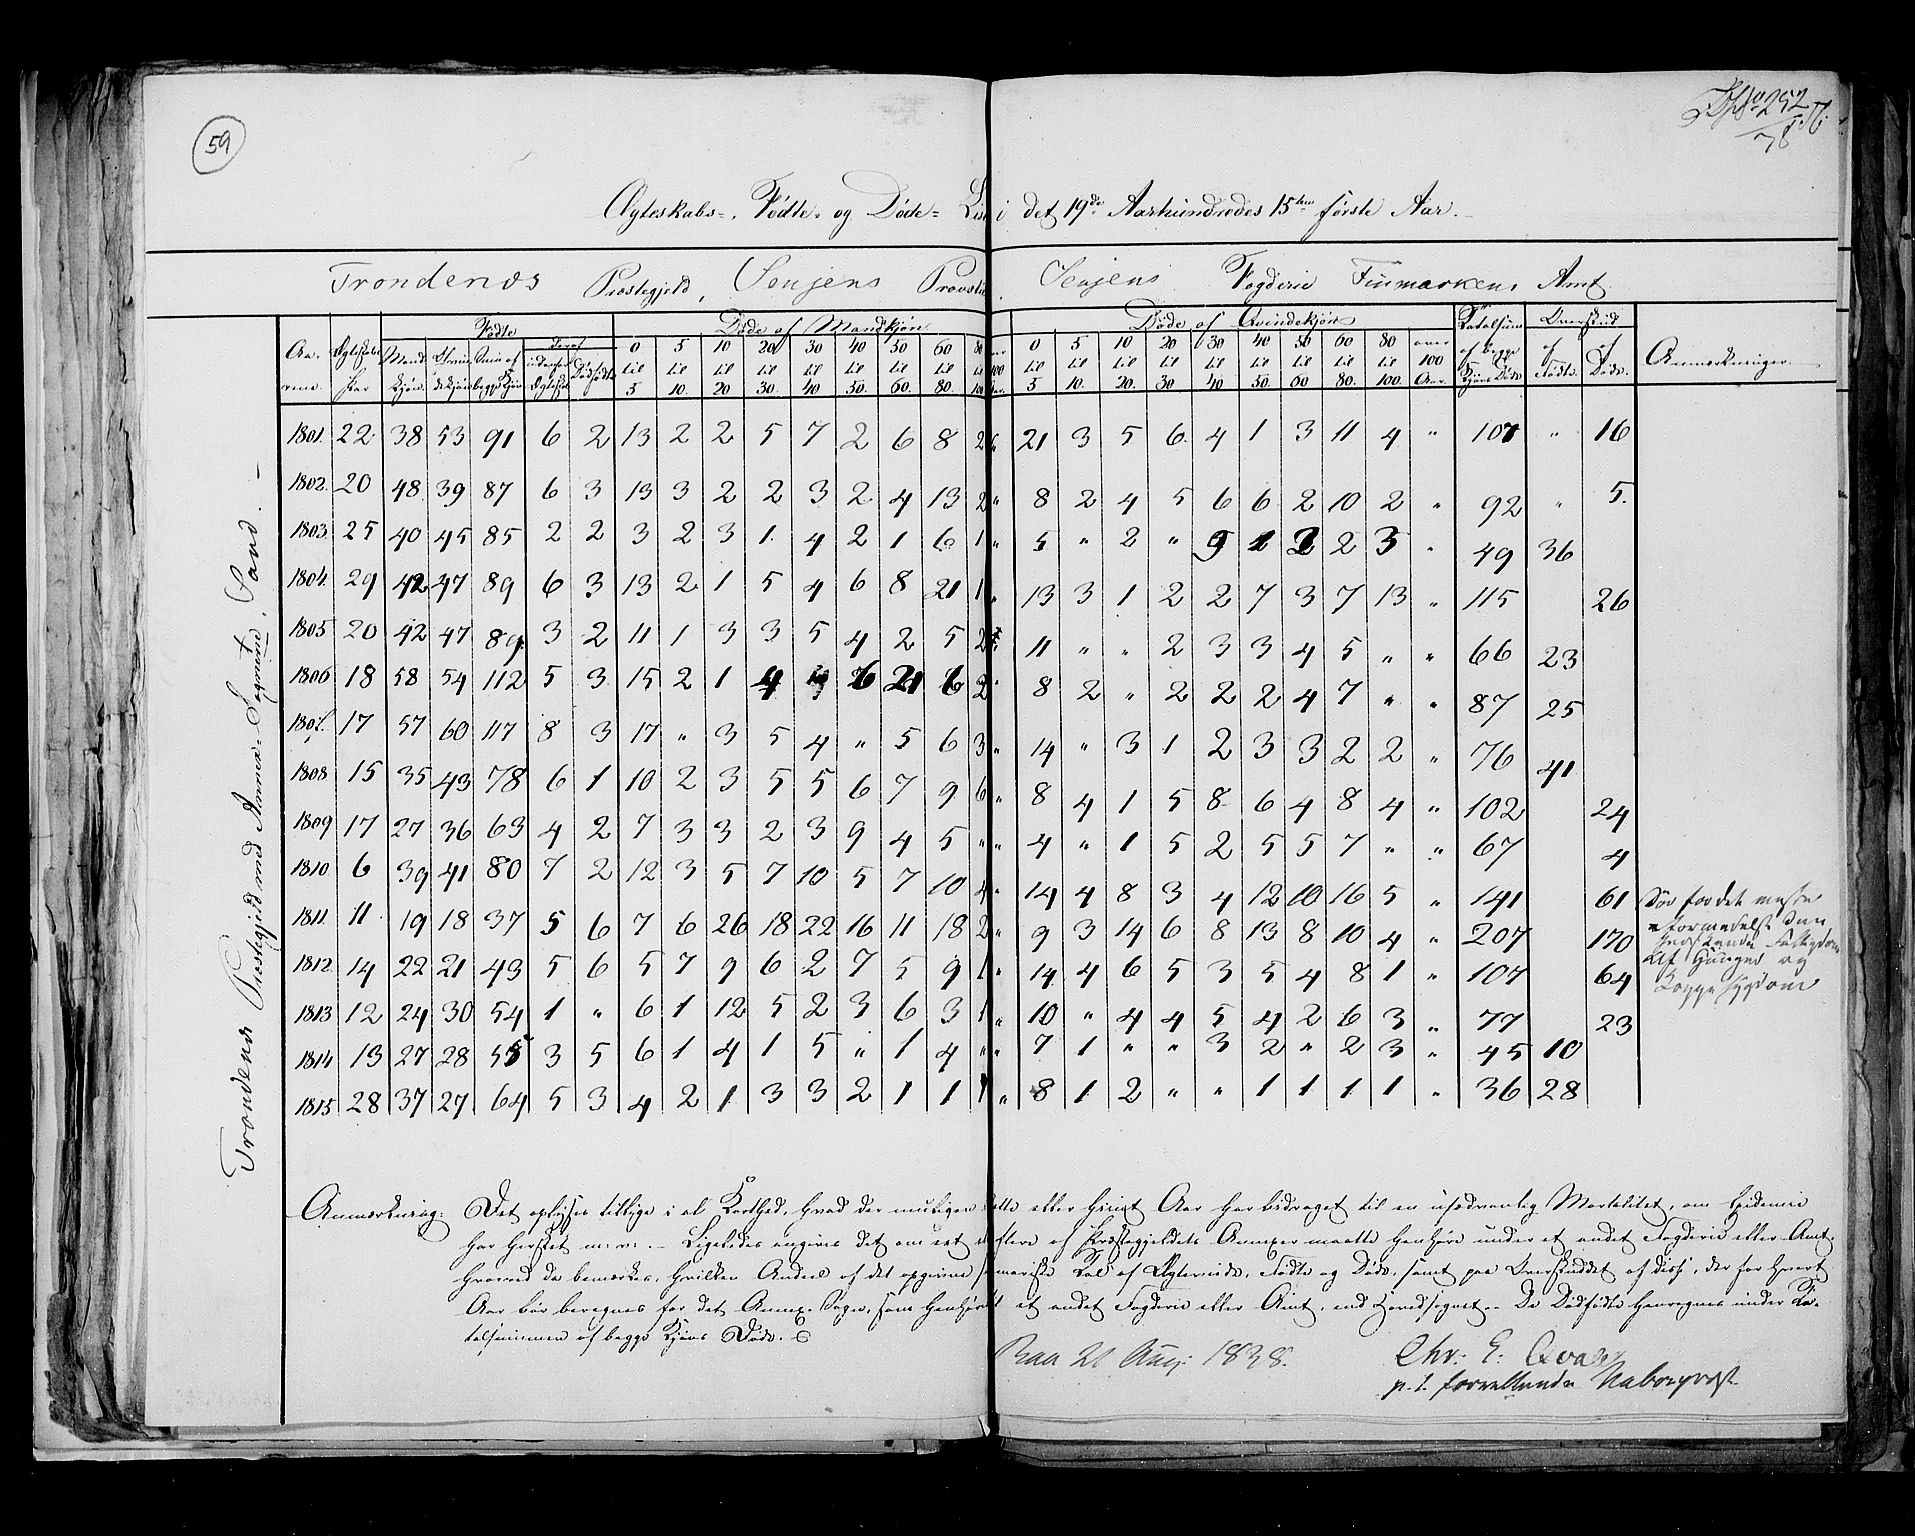 59
252
Ægteskabs-, Fødte- og Døde- Liste i det 19de Aarhundredes 15ten første Aar.
Trondenæs Præstegjeld, Senjens Provstie, Senjens Fogderie Finmarkens Amt
Trondenæs Præstegjeld med Annex-Sognene, Sand.
Fødte Døde af Mandkjøn Døde af Qvindekjøn Totalsum Overskud
Aarene. Ægteskaber Mandkjøn Qvindekjøn Sum af begge Kjøn Deraf udenfor Ægteskab Dødfødte 0 til 5 5 til 10. 10 til 20 20 til 30. 30 til 40 40 til 50. 50 til 60. 60 til 80. 80 til 100 over 100 Aar. 0 til 5 5 til 10. 10 til 20. 20 til 30 30 til 40 40 til 50. 50 til 60 60 til 80. 80 til 100. over 100 Aar. af begge Kjøns Døde af Fødte. af Døde. Anmærkninger.
1801. 22 38 53 91 6 2 13 2 2 5 7 2 6 8 2 " 21 3 5 6 4 1 3 11 4 " 107 " 16
1802. 20 48 39 87 6 3 13 3 2 2 3 2 4 13 2 " 8 2 4 5 6 6 2 10 2 " 92 " 5.
1803. 25 40 45 85 2 2 3 2 3 1 4 2 1 6 1 " 5 " 2 " 9 1 2 3 " 49 36
1804. 29 42 47 89 6 3 13 2 1 5 4 6 8 21 1 " 13 3 1 2 2 7 3 7 13 " 115 26
1805 20 42 47 89 3 2 11 1 3 3 5 4 2 5 2 11 " " 2 3 3 4 5 " " 66 23
1806 18 58 54 112 5 3 15 2 1 4 6 21 6 2 " 8 2 " 2 2 2 4 7 " " 87 25
1807. 17 57 60 117 8 3 17 " 3 5 4 " 5 6 3 " 14 " 3 1 2 3 3 2 2 " 76 41
1808 15 35 43 78 6 1 10 2 3 5 5 6 7 9 6 " 8 4 1 5 8 6 4 8 4 " 102 24
1809 17 27 36 63 4 2 7 3 3 2 3 9 4 5 " " 4 " 1 5 2 5 5 7 " " 67 4
1810 6 39 41 80 7 2 12 3 5 7 10 5 7 10 4 " 14 4 8 3 4 12 10 16 5 " 141 61 Dør for det meste
1811. 11 19 18 37 5 6 7 6 26 18 22 16 11 18 2 9 3 14 6 8 13 8 10 4 " 207 170 formedelst den
1812. 14 22 21 43 5 6 5 7 9 6 2 7 5 9 1 " 14 4 6 5 3 5 4 8 1 " 107 64 af Hunger og
1813 12 24 30 54 1 " 6 1 12 5 2 3 6 3 1 " 10 " 4 4 5 4 2 6 3 " 77 23
1814 13 27 28 55 3 5 6 1 4 1 5 " 1 4 " " 7 1 " " 3 2 " 2 3 " 45 10
1815 28 37 27 64 5 3 4 2 1 3 3 2 1 1 1 " 8 1 2 " " 1 1 1 1 " 36 28
Anmærkning: Det oplyses tillige i al Korthed, hvad der muligen dette eller hiint Aar har bidraget til en usædvanlig Mortalitet, om Epidemie
har hersket m. v. - Ligeledes angives det om eet eller flere af Præstegjeldets Annexer maatte henhøre under et andet Fogderie eller Amt,
hvorved da bemærkes, hvilken Andeel af det opgivne summariske Tal af Ægteviede, Fødte og Døde, samt paa Overskuddet af disse, der for hvert
Aar bør beregnes for det Annex-Sogn, som henhører til et andet Fogderie eller Amt, end Hovedsognet. - De Dødfødte henregnes under To-
talsummen af begge Kjøns Døde.
21 Aug: 1838.
Chr: E:
p. t.